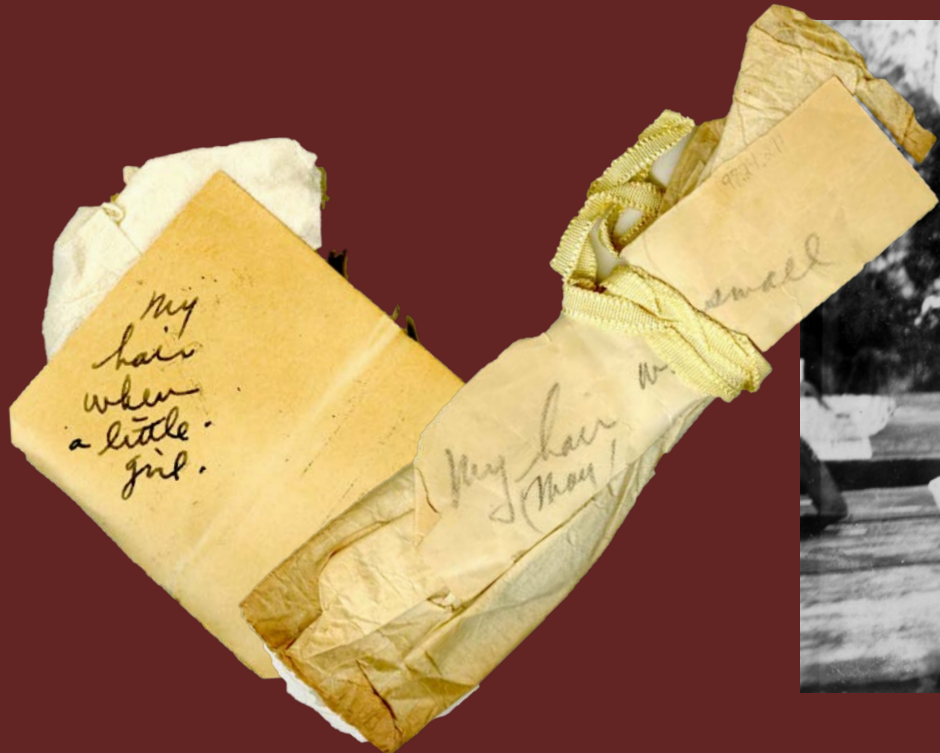 My
hair
when
a little
girl.
My hair w
small
(May)